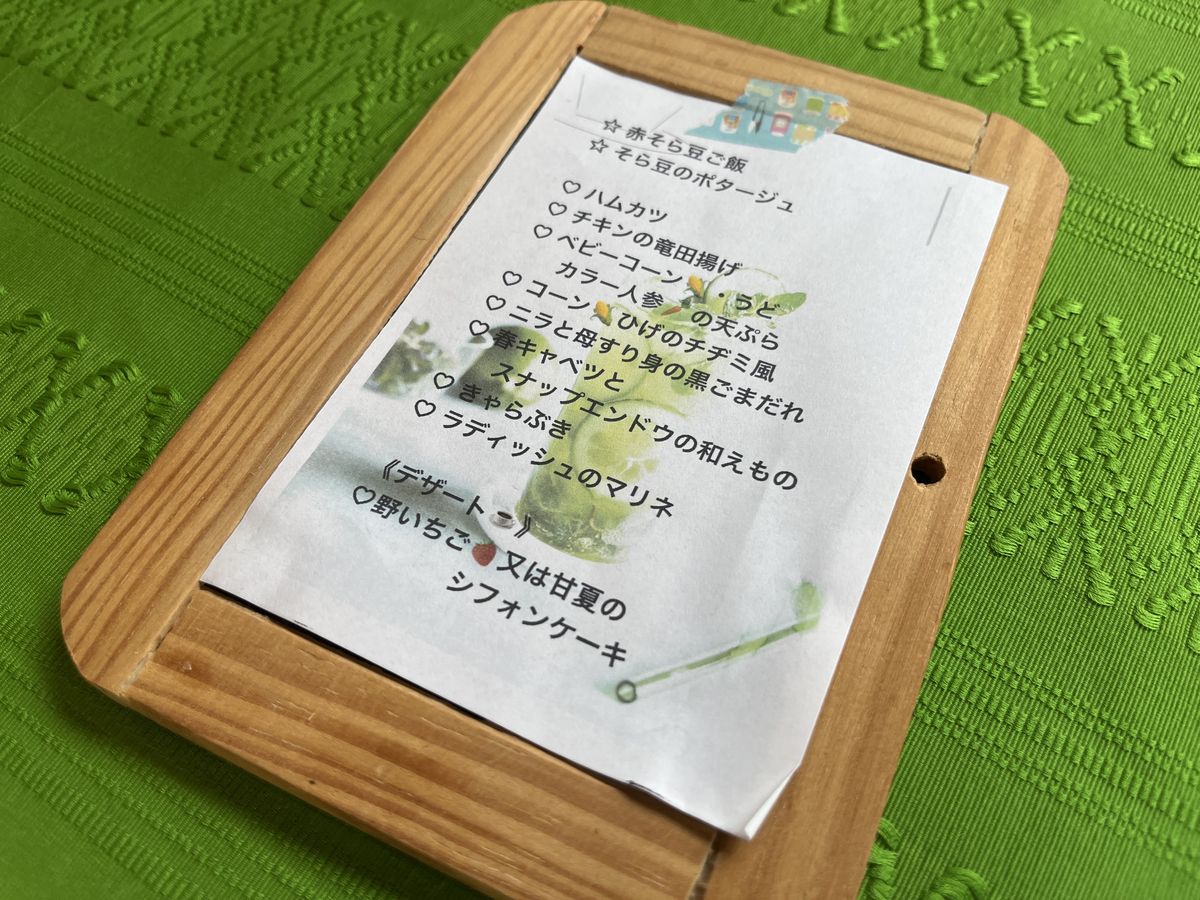 ☆ 赤そら豆ご飯
☆ そら豆のポタージュ
♡ ハムカツ
♡ チキンの竜田揚げ
♡ ベビーコーン🌽・うど
カラー人参🥕の天ぷら
♡ コーン🌽ひげのチヂミ風
♡ ニラと母すり身の黒ごまだれ
♡ 春キャベツと
スナップエンドウの和えもの
♡ きゃらぶき
♡ ラディッシュのマリネ
《デザート☕》
♡野いちご🍓又は甘夏の
シフォンケーキ